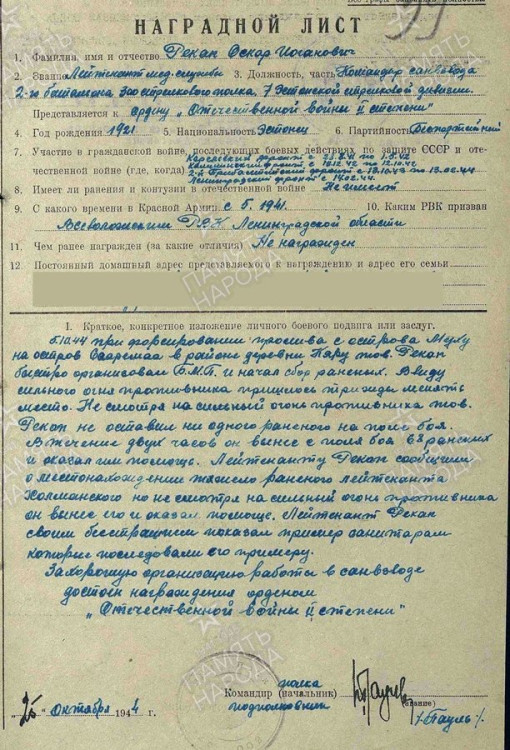 НАГРАДНОЙ ЛИСТ
1. Фамилия, имя и отчество Рекап Оскар Иоганович
2. Звание Лейтенант мед. службы 3. Должность, часть Командир санвзвода
2-го баталиона 300 стрелкового полка, 7 Эстонской стрелковой дивизии.
Представляется к ордену „Отечественной войны II степени"
4. Год рождения 1921 5. Национальность Эстонец 6. Партийность Беспартийный
7. Участие в гражданской войне, последующих боевых действиях по защите СССР и оте-
чественной войне (где, когда) Карельский фронт с
Калининский фронт с 10.12.42 по
2-й Прибалтийский фронт с 18.10.43 по 13.02.44
Ленинградский фронт с 14.02.44.
8. Имеет ли ранения и контузии в отечественной войне Не имеет
9. С какого времени в Красной Армии с 5. 1941. 10. Каким РВК призван
Всеволожским РВК Ленинградской области
11. Чем ранее награжден (за какие отличия) Не награжден
12. Постоянный домашний адрес представляемого к награждению и адрес его семьи
I. Краткое, конкретное изложение личного боевого подвига или заслуг.
5.10.44 при форсировании пролива с острова Муху
на остров Сааремаа в районе деревни тов. Рекап
быстро организовал Б.М.П. и начал сбор раненых. Ввиду
сильного огня противника пришлось трижды менять
место. Не смотря на сильный огонь противника тов.
Рекап не оставил ни одного раненого на поле боя.
В течение двух часов он вынес с поля боя 63 раненых
и оказал им помощь. Лейтенанту Рекап сообщили
о местонахождении тяжело раненого лейтенанта
Холманского но не смотря на сильный огонь противника
он вынес его и оказал помощь. Лейтенант Рекап
своим бесстрашием показал пример санитарам
которые последовали его примеру.
За хорошую организацию работы в санвзводе
достоин награждения орденом
„Отечественной войны II степени"
полка
Командир (начальник)
подполковник
(звание)
/Пауль/.
„25" Октября 1944 г.
ПАМЯТЬ НАРОДА